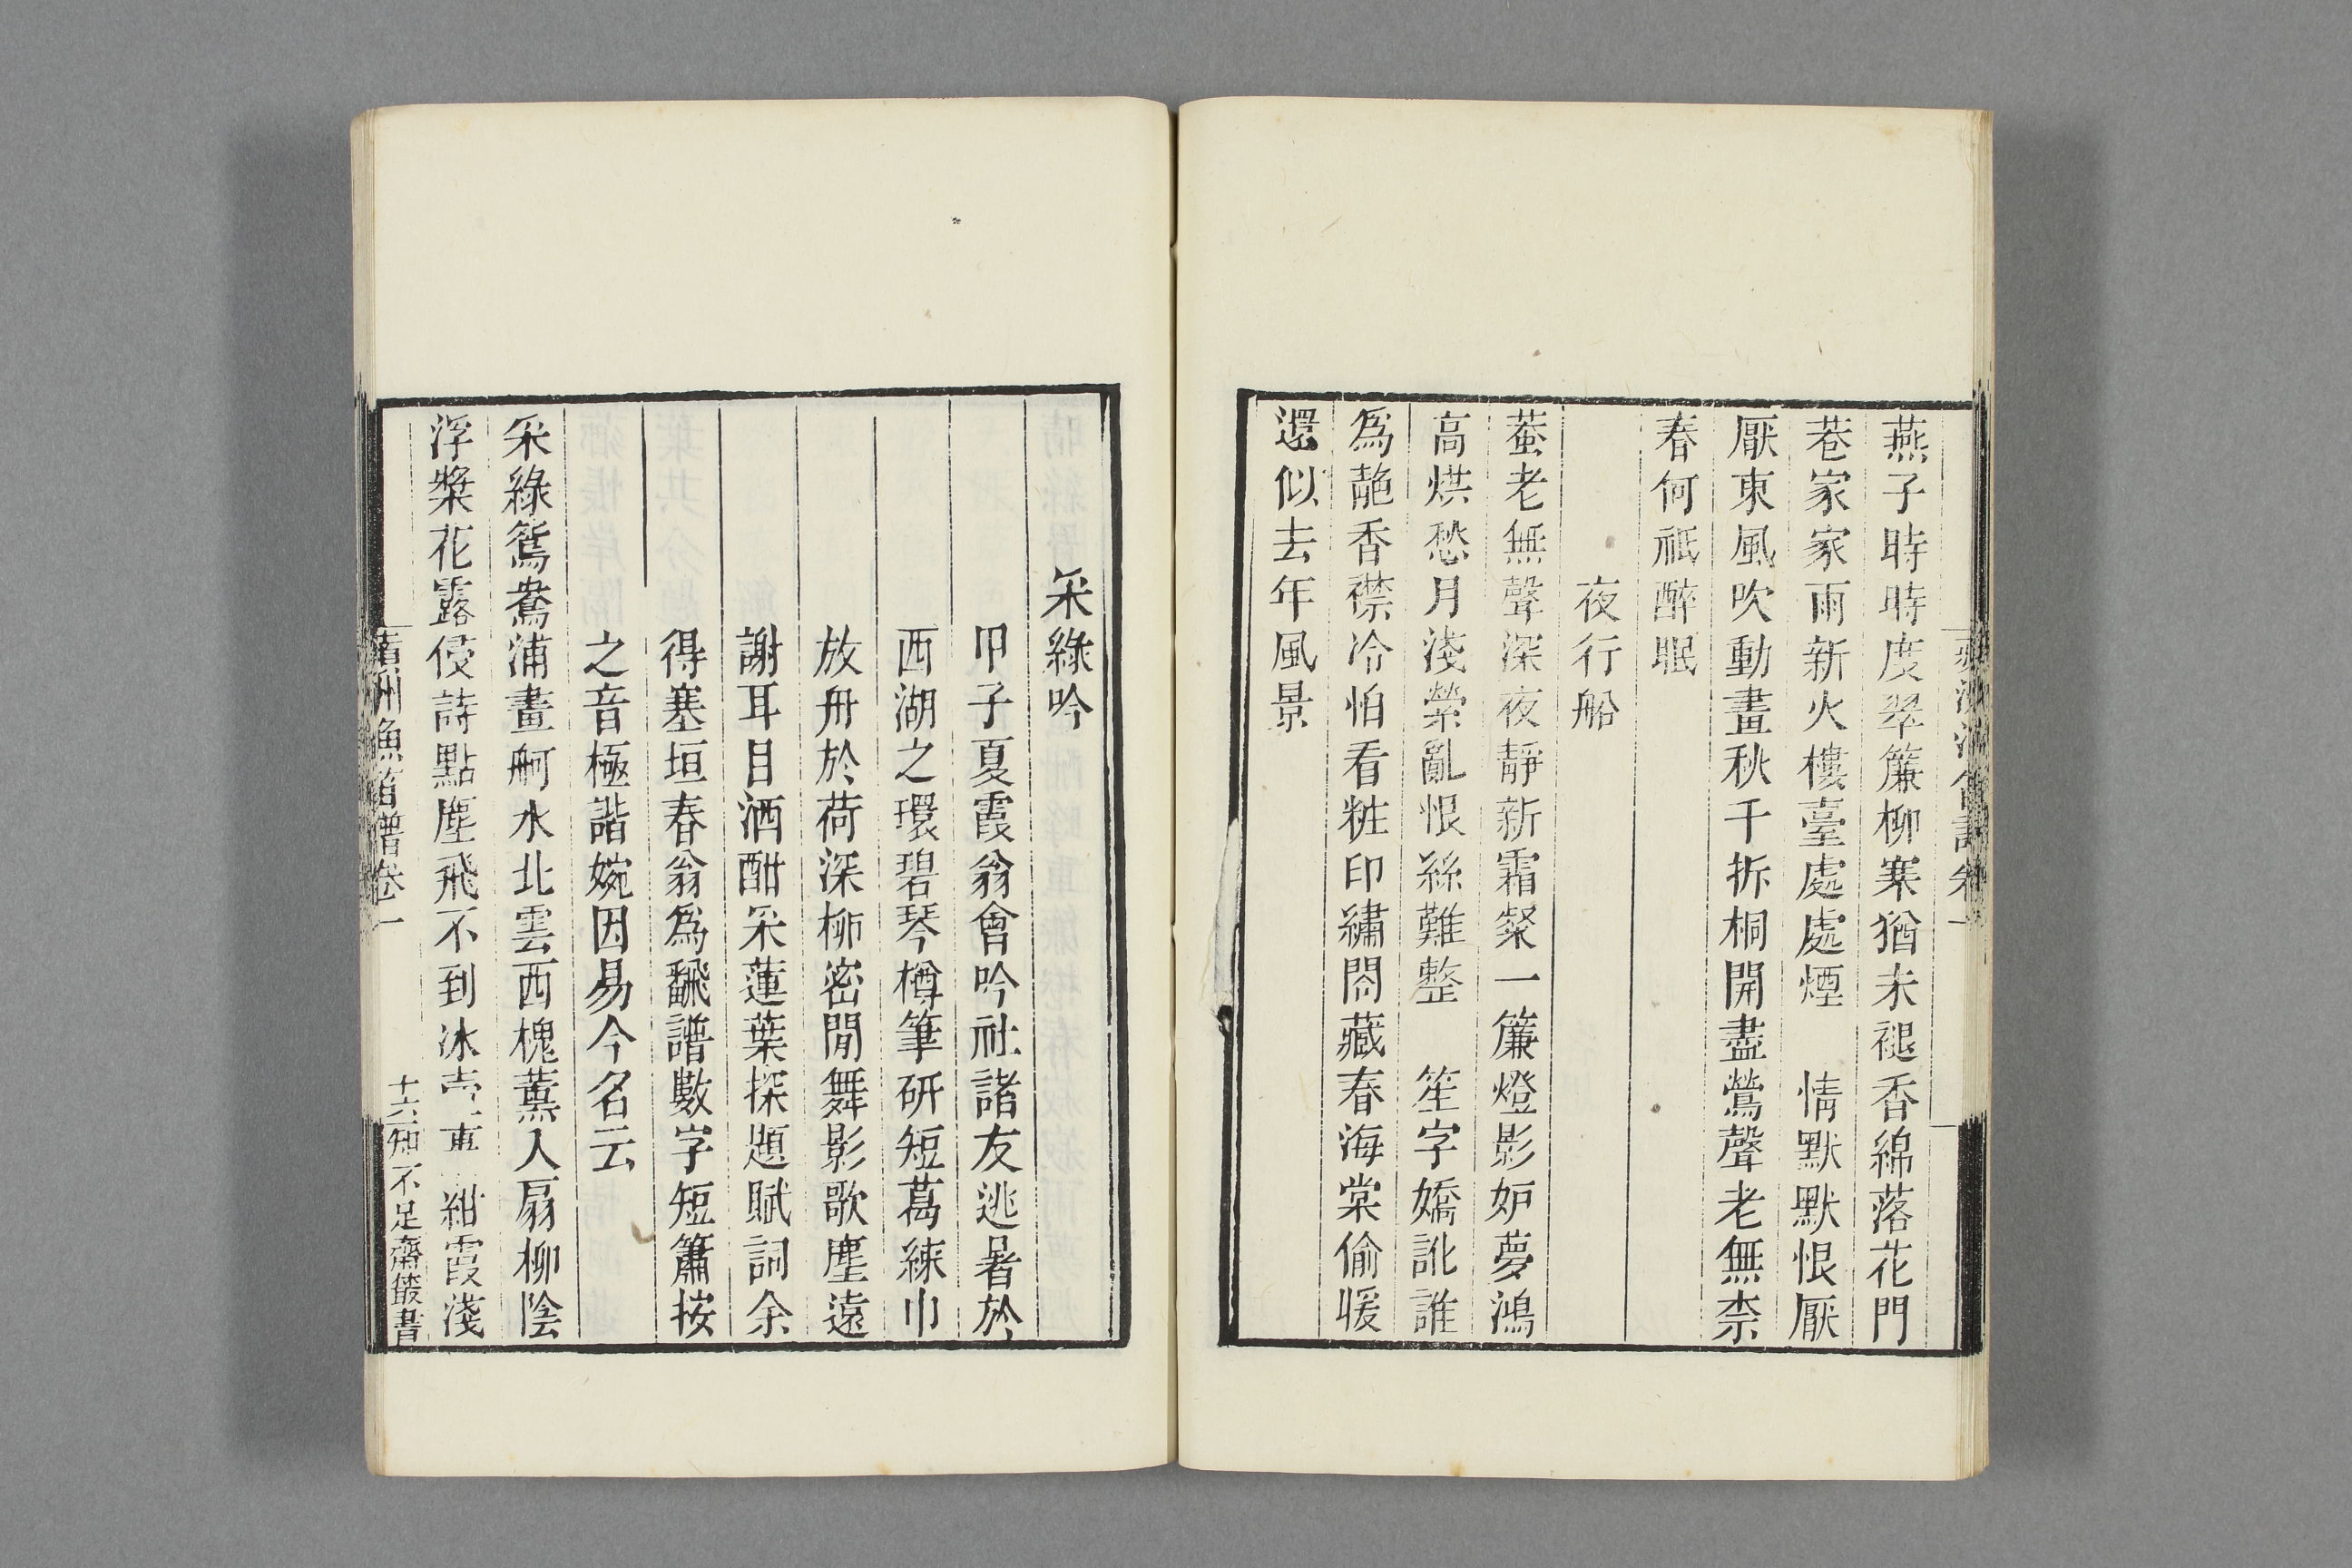 燕子時時度翠簾柳寒猶未褪香綿落花門
巷家家雨新火樓臺處處煙　情默默恨厭
厭東風吹動畫秋千拆桐開盡鶯聲老無柰
春何祇醉眠
夜行船
蛩老無聲深夜靜新霜粲一簾燈影妒夢鴻
高烘愁月淺縈亂恨絲難整　笙字嬌訛誰
為靘香襟冷怕看粧印繡閤藏春海棠偷暖
還似去年風景
采綠吟
甲子夏霞翁會吟社諸友逃暑於
西湖之環碧琴樽筆研短葛練巾
放舟於荷深柳密閒舞影歌塵遠
謝耳目酒酣采蓮葉探題賦詞余
得塞垣春翁為飜譜數字短簫按
之音極諧婉因易今名云
采綠鴛鴦浦畫舸水北雲西槐薰入扇柳陰
浮槳花露侵詩點塵飛不到冰壺裏紺霞淺
洲漁笛譜卷一
十六
知不足齋叢書